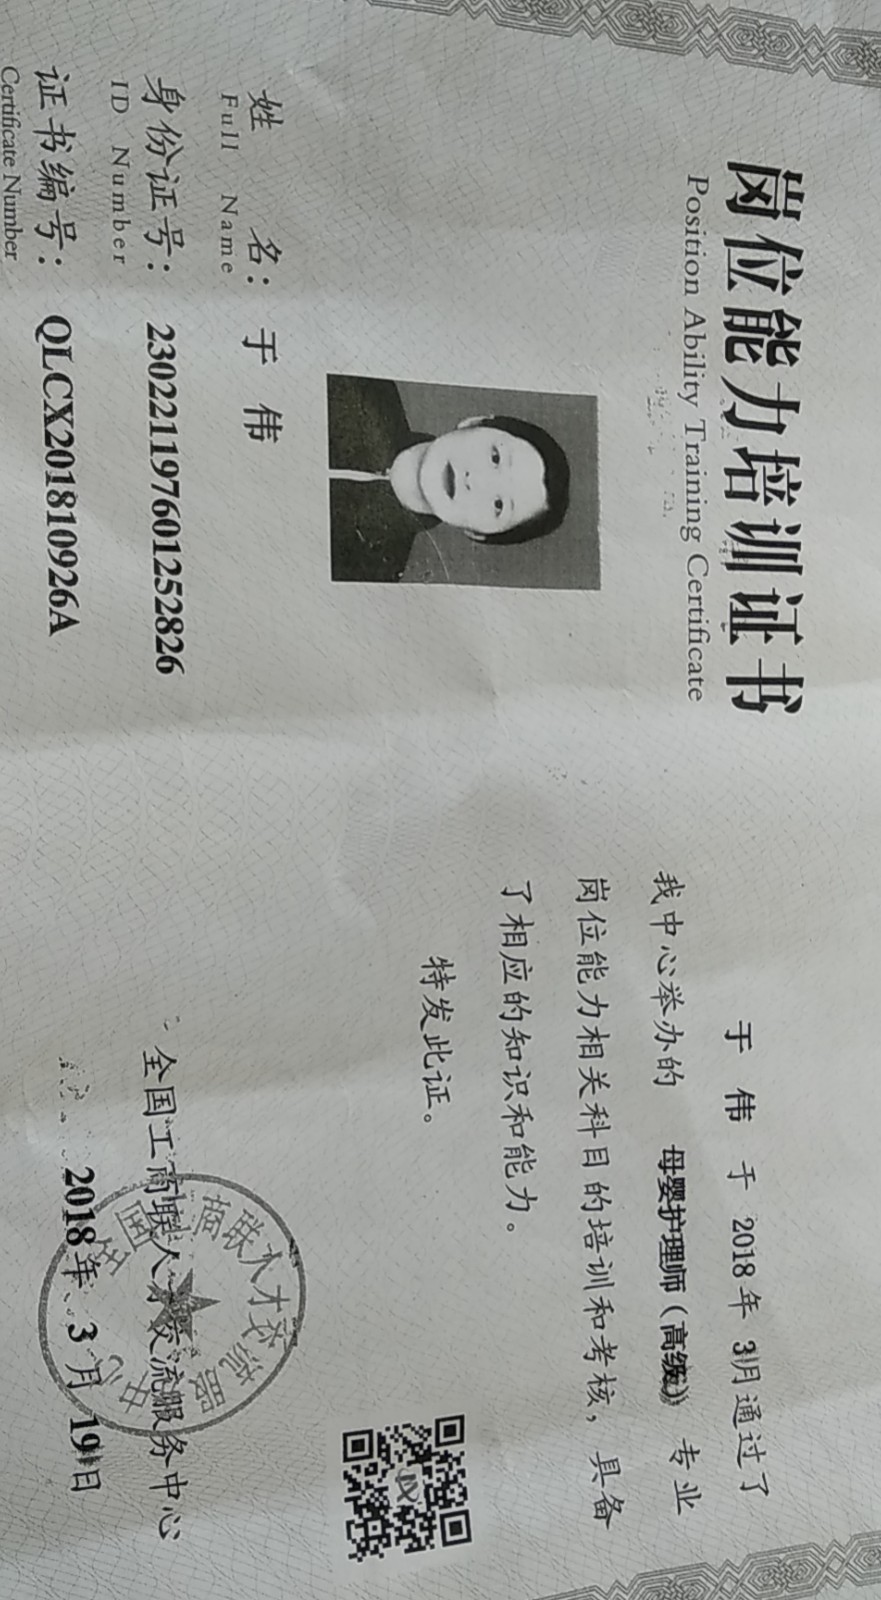 岗位能力培训证书
Position Ability Training Certificate
姓 名：于 伟
Full Name
身份证号：230221197601252826
ID Number
证书编号：QLCX201810926A
Certificate Number
于 伟 于 2018 年 3月通过了
我中心举办的 母婴护理师（高级） 专业
岗位能力相关科目的培训和考核，具备
了相应的知识和能力。
特发此证。
全国工商联人才交流服务中心
2018年 3月 19日